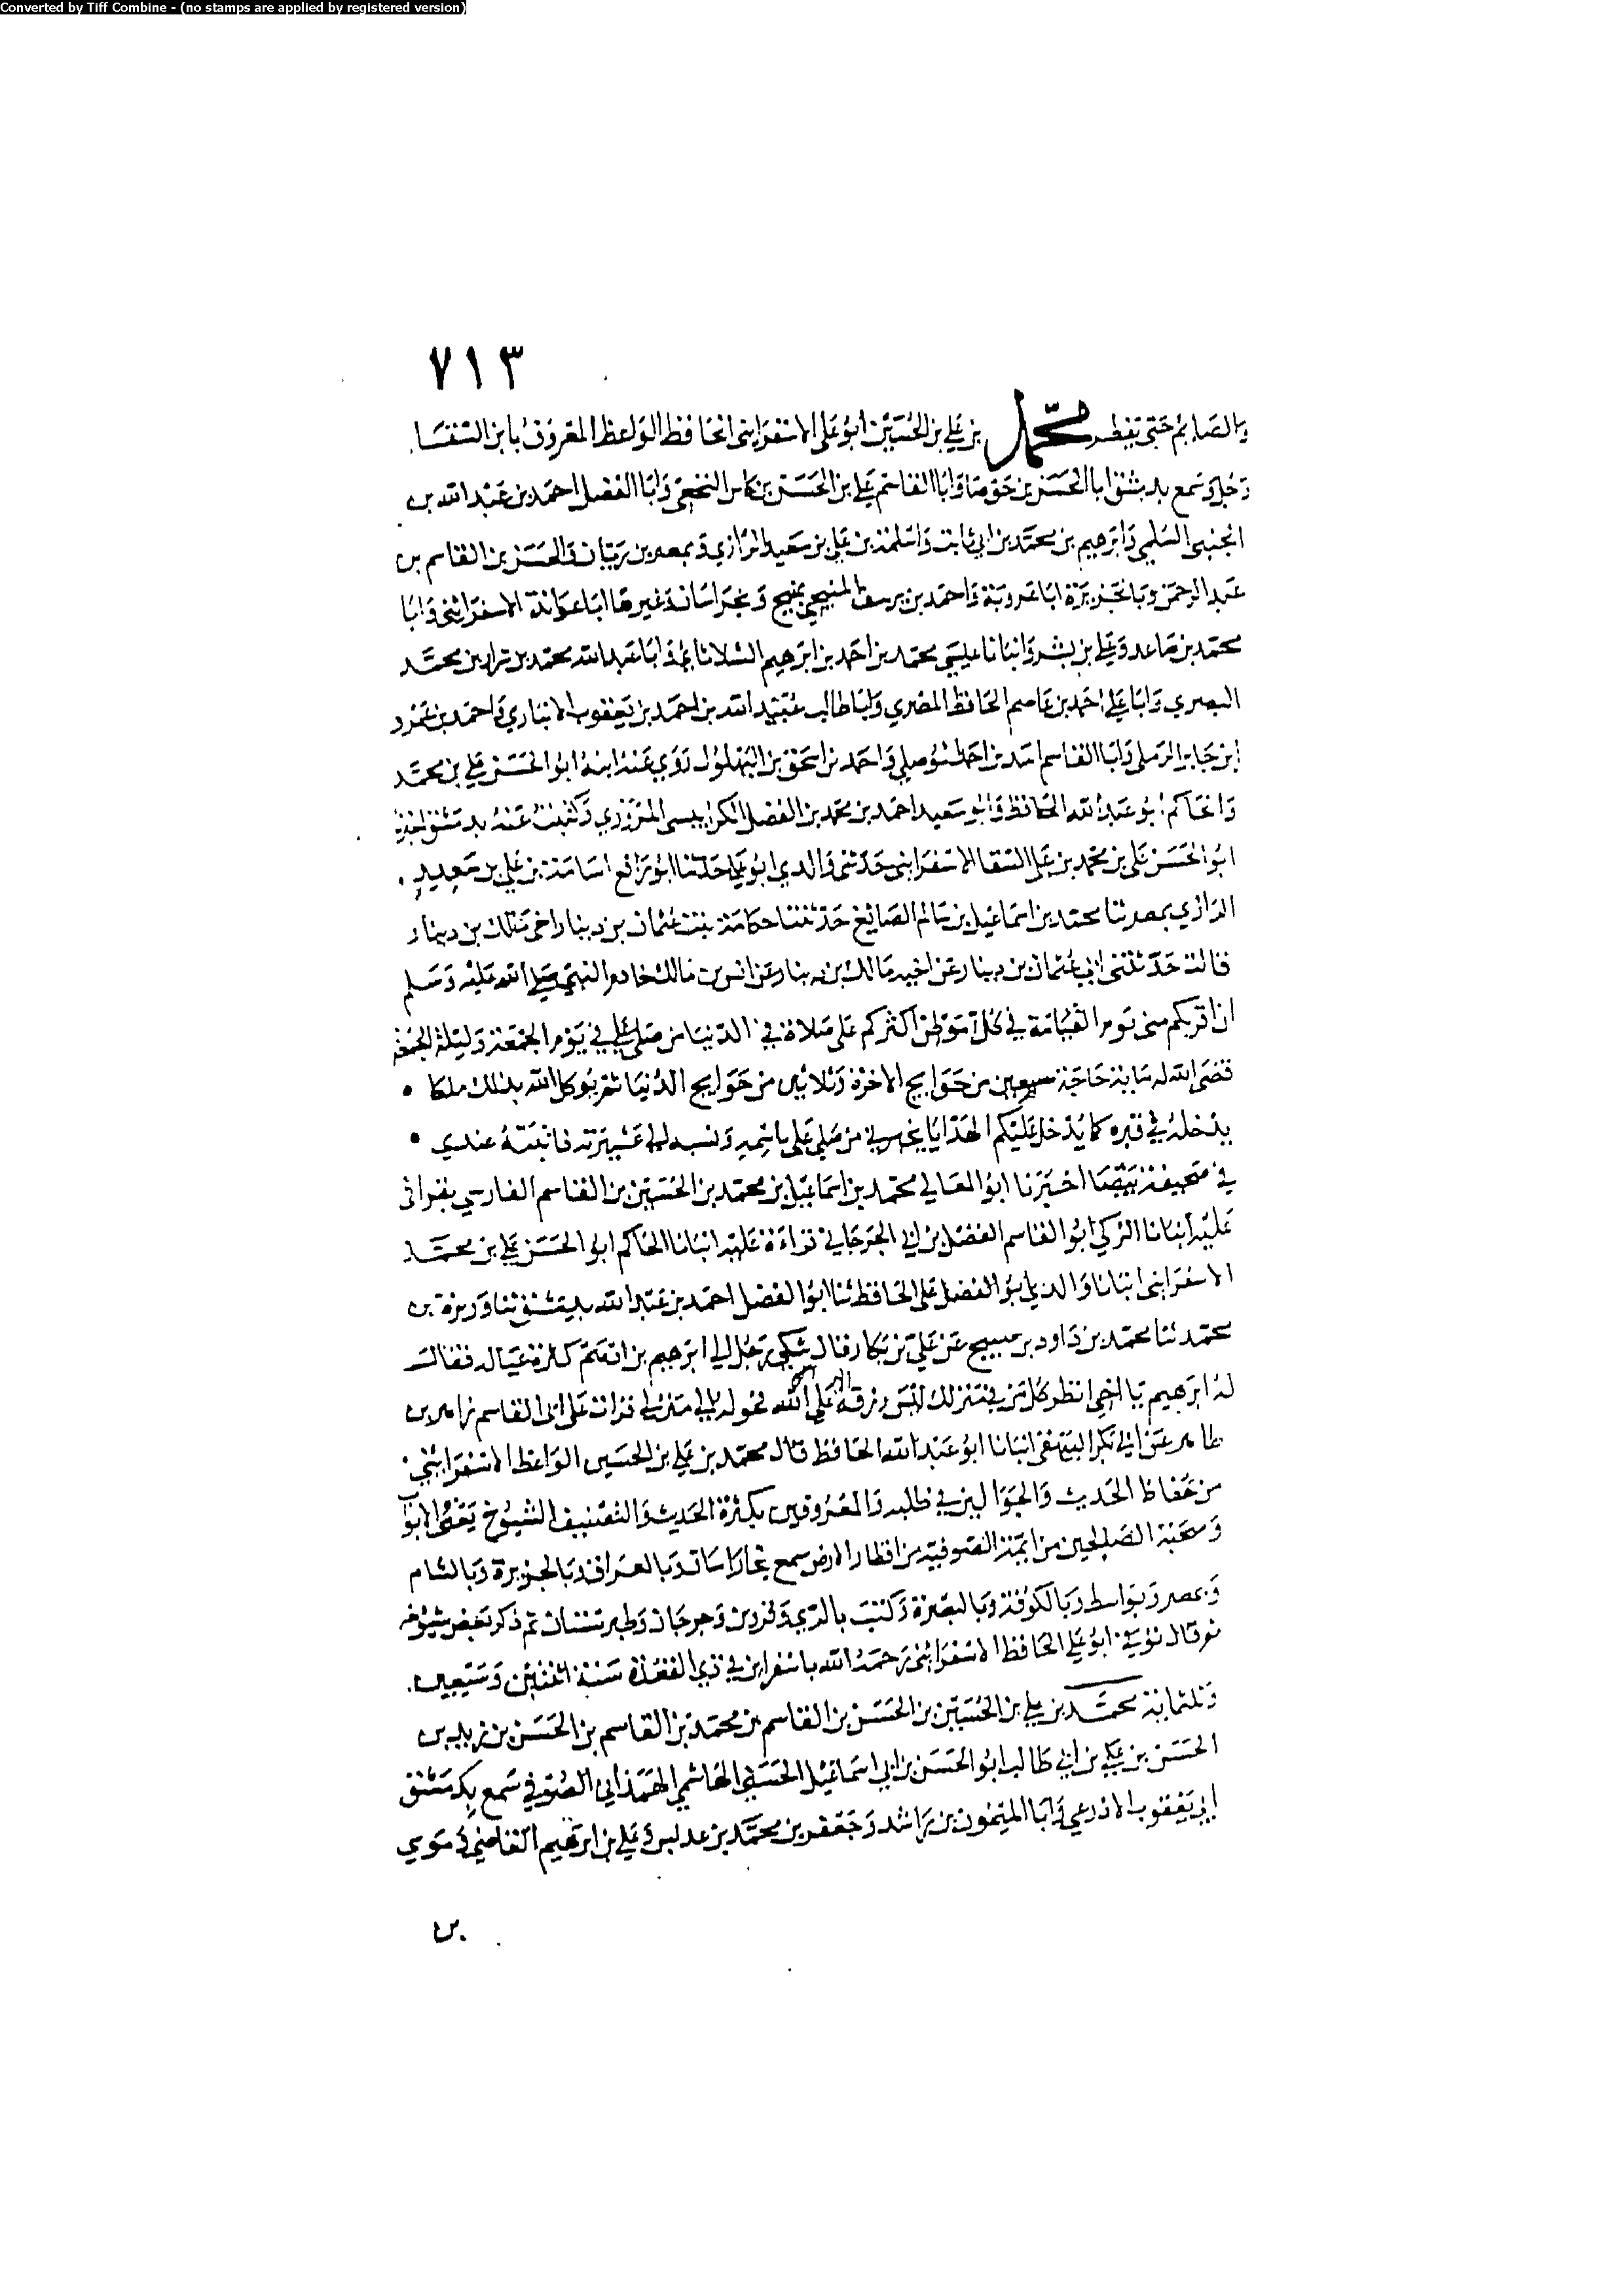 Converted by Tiff Combine - (no stamps are applied by registered version)
٧١٣
والصايم حتى يفطر محمد بن علي بن الحسين ابو علي الاسفرايني الحافظ الواعظ المعروف بابن السقا
رحل وسمع بدمشق ابا الحسن بن حوصا وابا القاسم علي بن الحسن بن كاس النخعي وابا الفضل احمد بن عبد الله بن
السلمي وابرهيم بن محمد بن ابي ثابت واسامة بن علي بن سعيد الرازي وبمصر بن زبان والحسن بن القاسم بن
عبد الرحمن وبالجزيرة ابا عروبة واحمد بن يوسف المنبجي بمنبج وبخراسان وغيرها ابا عوانة الاسفرايني وابا
محمد بن صاعد وعلي بن بشر وابا عيسى محمد بن احمد بن ابرهيم وابا عبد الله محمد بن محمد
البصري وابا علي احمد بن عاصم الحافظ المصري وابا طالب عبيد الله بن احمد بن يعقوب الانباري واحمد بن عمرو
ابن جابر الرملي وابا القاسم واحمد بن اسحق بن البهلول روى عنه ابنه ابو الحسن علي بن محمد
والحاكم ابو عبد الله الحافظ وابو سعيد احمد بن محمد بن الفضل الكرابيسي المروزي وكتبت عنه بدمشق
ابو الحسن علي بن محمد بن علي السقا الاسفرايني حدثني والدي ابو علي حدثنا ابو رافع اسامة بن علي بن سعيد
الرازي بمصر ثنا محمد بن اسماعيل بن سالم الصايغ حدثتنا حكامة بنت عثمان بن دينار اخي ملك بن دينار
قالت حدثني ابي عثمان بن دينار عن اخيه مالك بن دينار عن انس بن مالك خادم النبي صلى الله عليه وسلم
ان اقربكم مني يوم القيامة في كل موطن اكثركم علي صلاة في الدنيا من صلى علي في يوم الجمعة وليلة الجمعة
قضى الله له ماية حاجة سبعين من حوايج الاخرة وثلاثين من حوايج الدنيا ثم يوكل الله بذلك ملكا
يدخله في قبره كما يدخل عليكم الهدايا يخبرني من صلى علي باسمه ونسبه الى عشيرته فاثبته عندي
في صحيفة بيضا اخبرنا ابو المعالي محمد بن اسماعيل بن محمد بن الحسين بن القاسم الفارسي بقراتي
عليه انبانا الزكي ابو القاسم الفضل بن ابي الجرجاني قراءة عليه انبانا الحاكم ابو الحسن علي بن محمد
الاسفرايني انبانا والدي ابو الفضل علي الحافظ ثنا ابو الفضل احمد بن عبد الله بدمشق ثنا وريزة بن
محمد ثنا محمد بن داود بن صبيح عن علي بن بكار قال شكى رجل الى ابرهيم بن ادهم كثرة عياله فقال
له ابرهيم يا اخي انظر كل من في منزلك ليس رزقه على الله فحوله الى منزلي قرات على ابي القاسم زاهر بن
طاهر عن ابي بكر البيهقي انبانا ابو عبد الله الحافظ قال محمد بن علي بن الحسين الواعظ الاسفرايني
من حفاظ الحديث والجوالين في طلبه والمعروفين بكثرة الحديث والتصنيف الشيوخ الابواب
وصحبة الصالحين من ايمة الصوفية من اقطار الارض سمع بخراسان وبالعراق وبالجزيرة وبالشام
وبمصر وبواسط وبالكوفة وبالبصرة وكتب بالري وقزوين وجرجان وطبرستان ثم ذكر بعض شيوخه
ثم قال توفي ابو علي الحافظ الاسفرايني رحمه الله باسفراين في ذي القعدة سنة اثنتين وسبعين
وثلثماية محمد بن علي بن الحسين بن الحسن بن القاسم بن محمد بن القاسم بن الحسن بن زيد بن
الحسن بن علي بن ابي طالب ابو الحسن بن ابي اسماعيل الحسني الهاشمي الهمذاني الصوفي سمع بدمشق
ابا يعقوب الاذرعي وابا الميمون بن راشد وجعفر بن محمد بن وعلي بن ابرهيم القاضي
بن